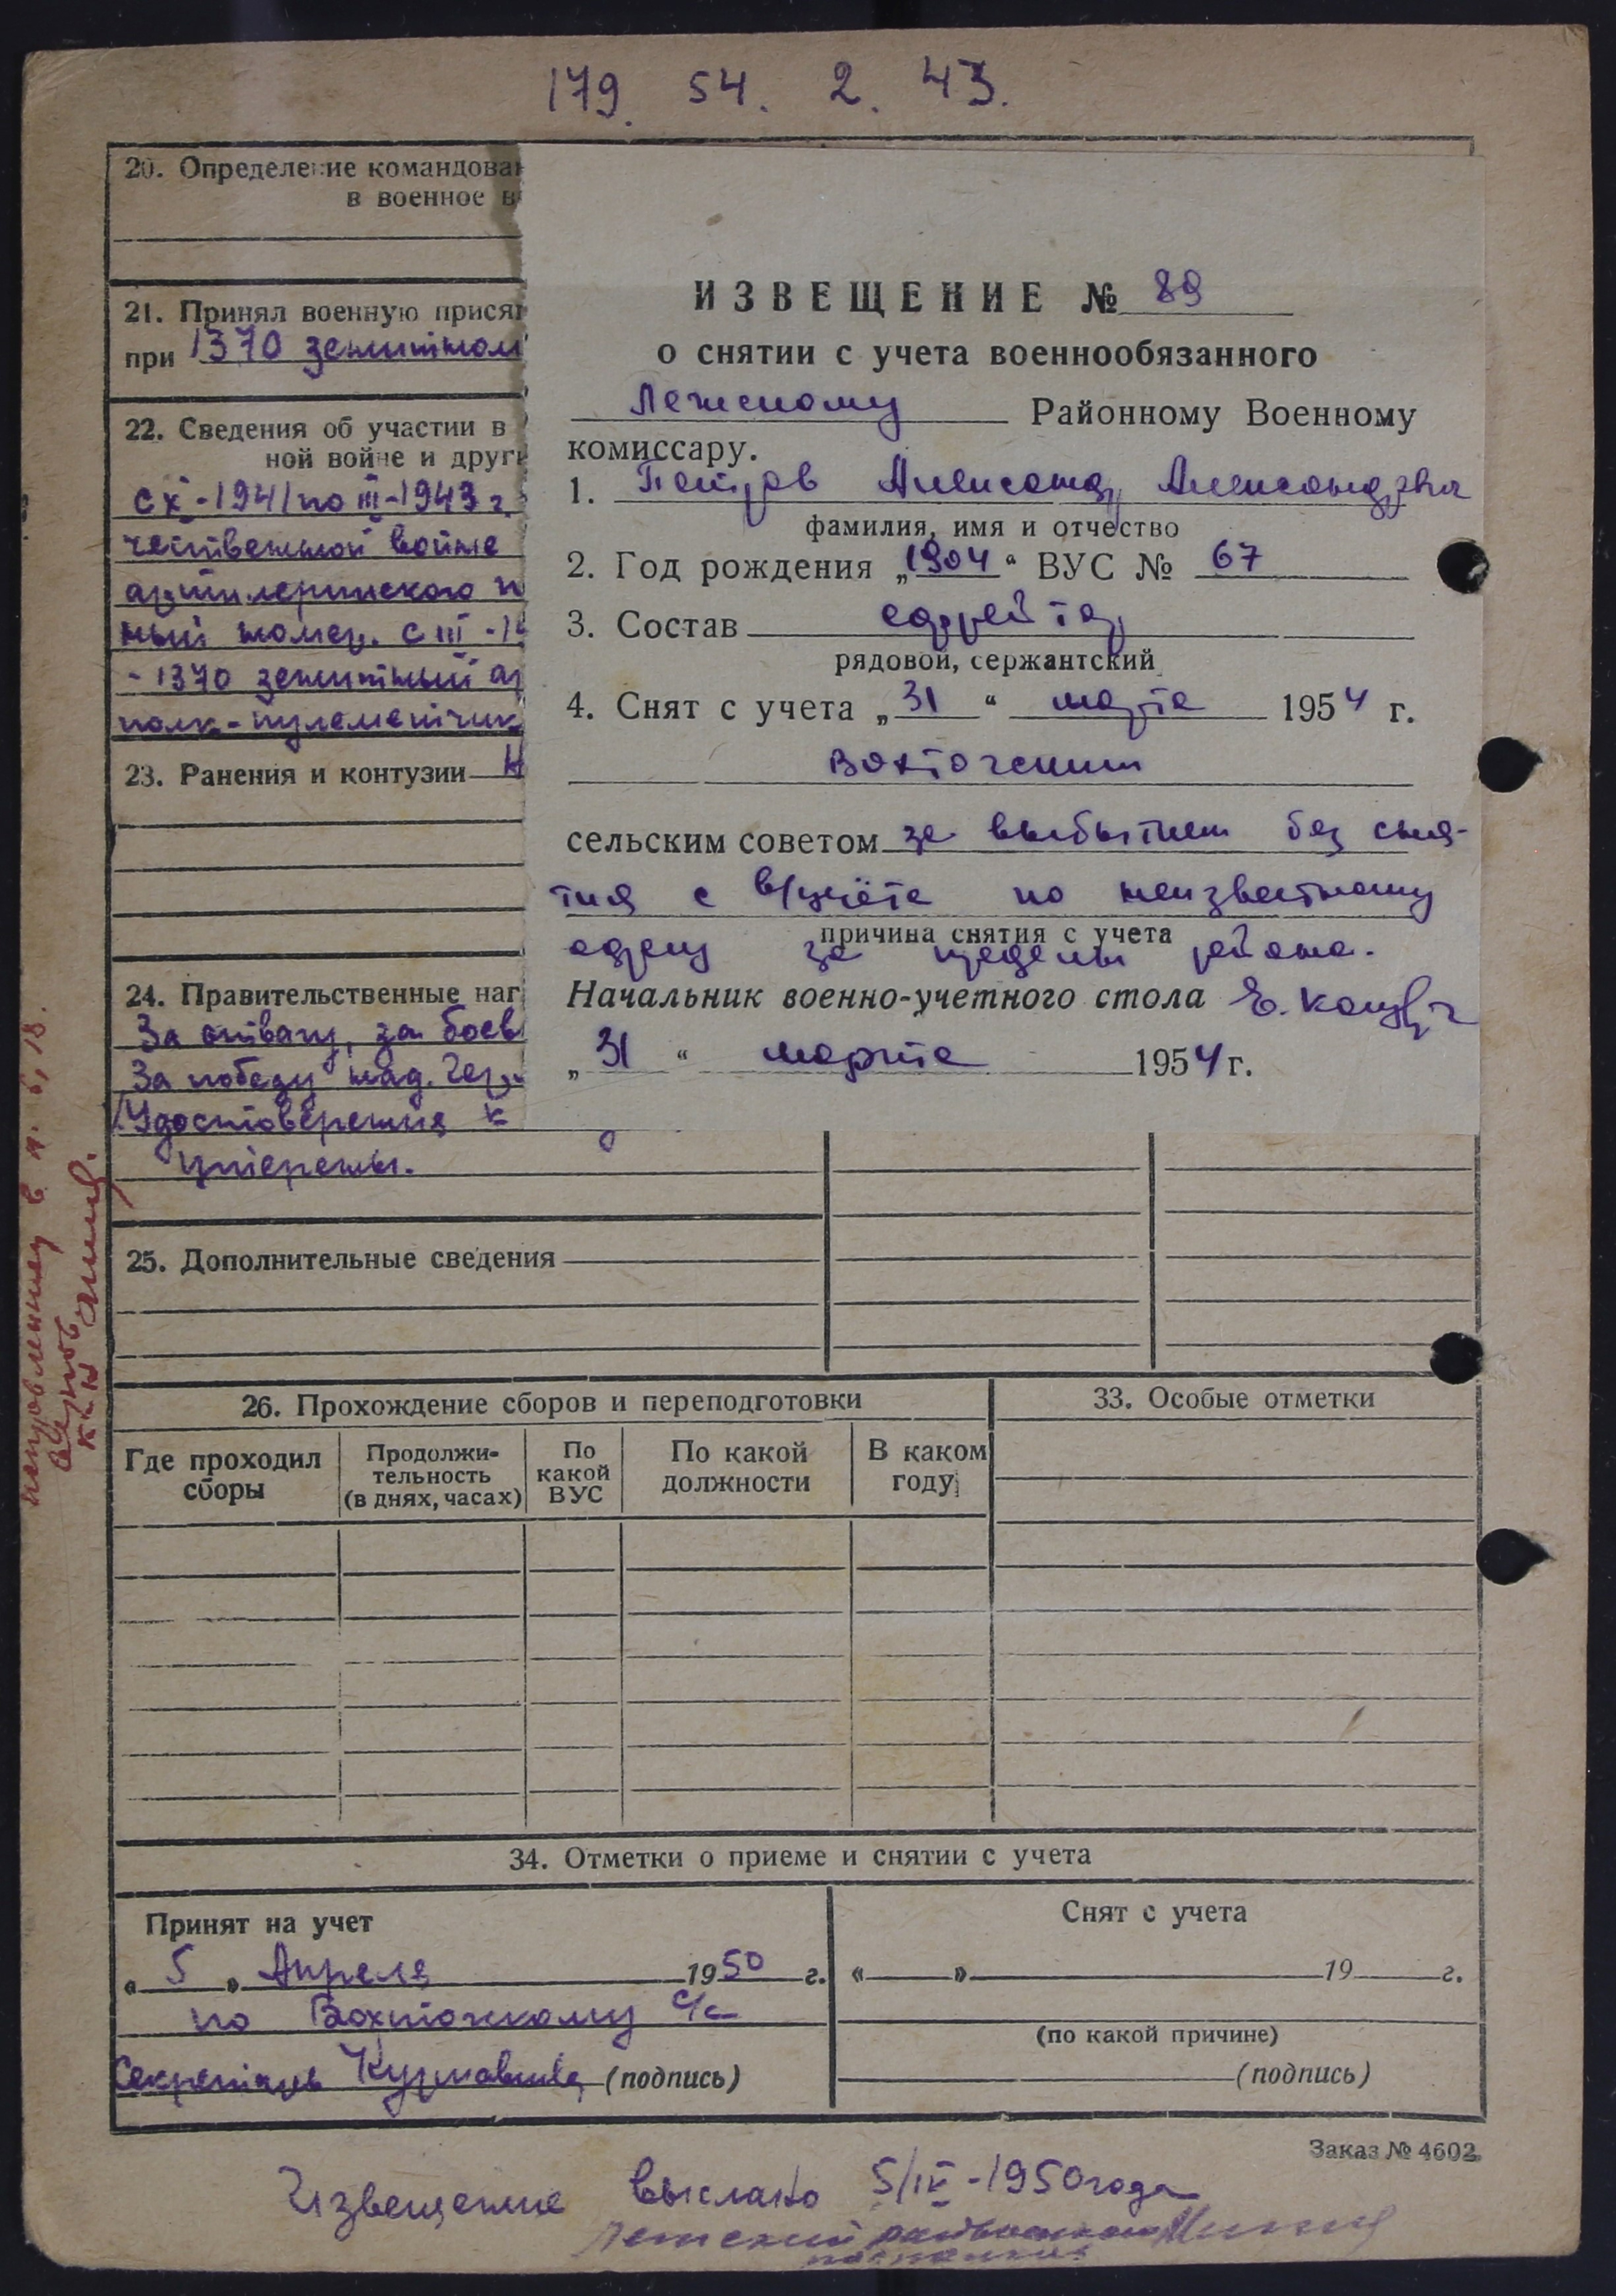 179. 54. 2. 43.
20. Определение командован
в военное в
21. Принял военную присяг
при 1370 зенитном
22. Сведения об участии в
ной войне и други
с X-1941 по III-1943 г.
чественной войне
артилерийского п
ный номер. с III-19
-1370 зенитный ар
полк-пулеметчик
23. Ранения и контузии Н
24. Правительственные наг
За отвагу, за боев
За победу над. Гер
Удостоверения к
утеряны.
25. Дополнительные сведения
ИЗВЕЩЕНИЕ № 89
о снятии с учета военнообязанного
Лежскому Районному Военному
комиссару.
1. Петров Александр Александрович
фамилия, имя и отчество
2. Год рождения „1904“ ВУС № 67
3. Состав ефрейтор
рядовой, сержантский
4. Снят с учета „31“ марта 1954 г.
Вохточским
сельским советом за выбытием без сня-
тия с в/учёта по неизвестному
причина снятия с учета
адресу за пределы района.
Начальник военно-учетного стола Е.
„31“ марта 1954 г.
26. Прохождение сборов и переподготовки
Где проходил сборы
Продолжи-
тельность
(в днях, часах)
По
какой
ВУС
По какой
должности
В каком
году
33. Особые отметки
34. Отметки о приеме и снятии с учета
Принят на учет
«5» Апреля 1950 г.
по Вохтожскому с/с
Секретарь (подпись)
Снят с учета
« » 19 г.
(по какой причине)
(подпись)
Заказ № 4602
Извещение выслано 5/IV-1950 года